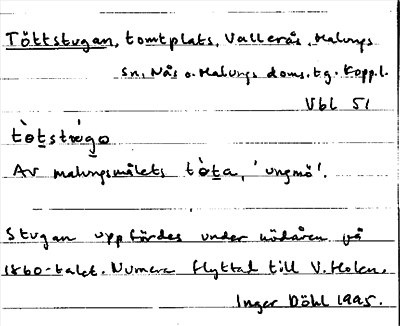 Töttstugan, tomtplats, Vallerås, Malungs
sn, Nås o. Malungs doms. tg. Kopp.l.
Vbl 51
tò̱t̠stræ̀go
Av malungsmålets tò̱t̠a, 'ungmö'.
Stugan uppfördes under nödåren på
1860-talet. Numera flyttad till V. Holen.
Inger Döhl 1995.